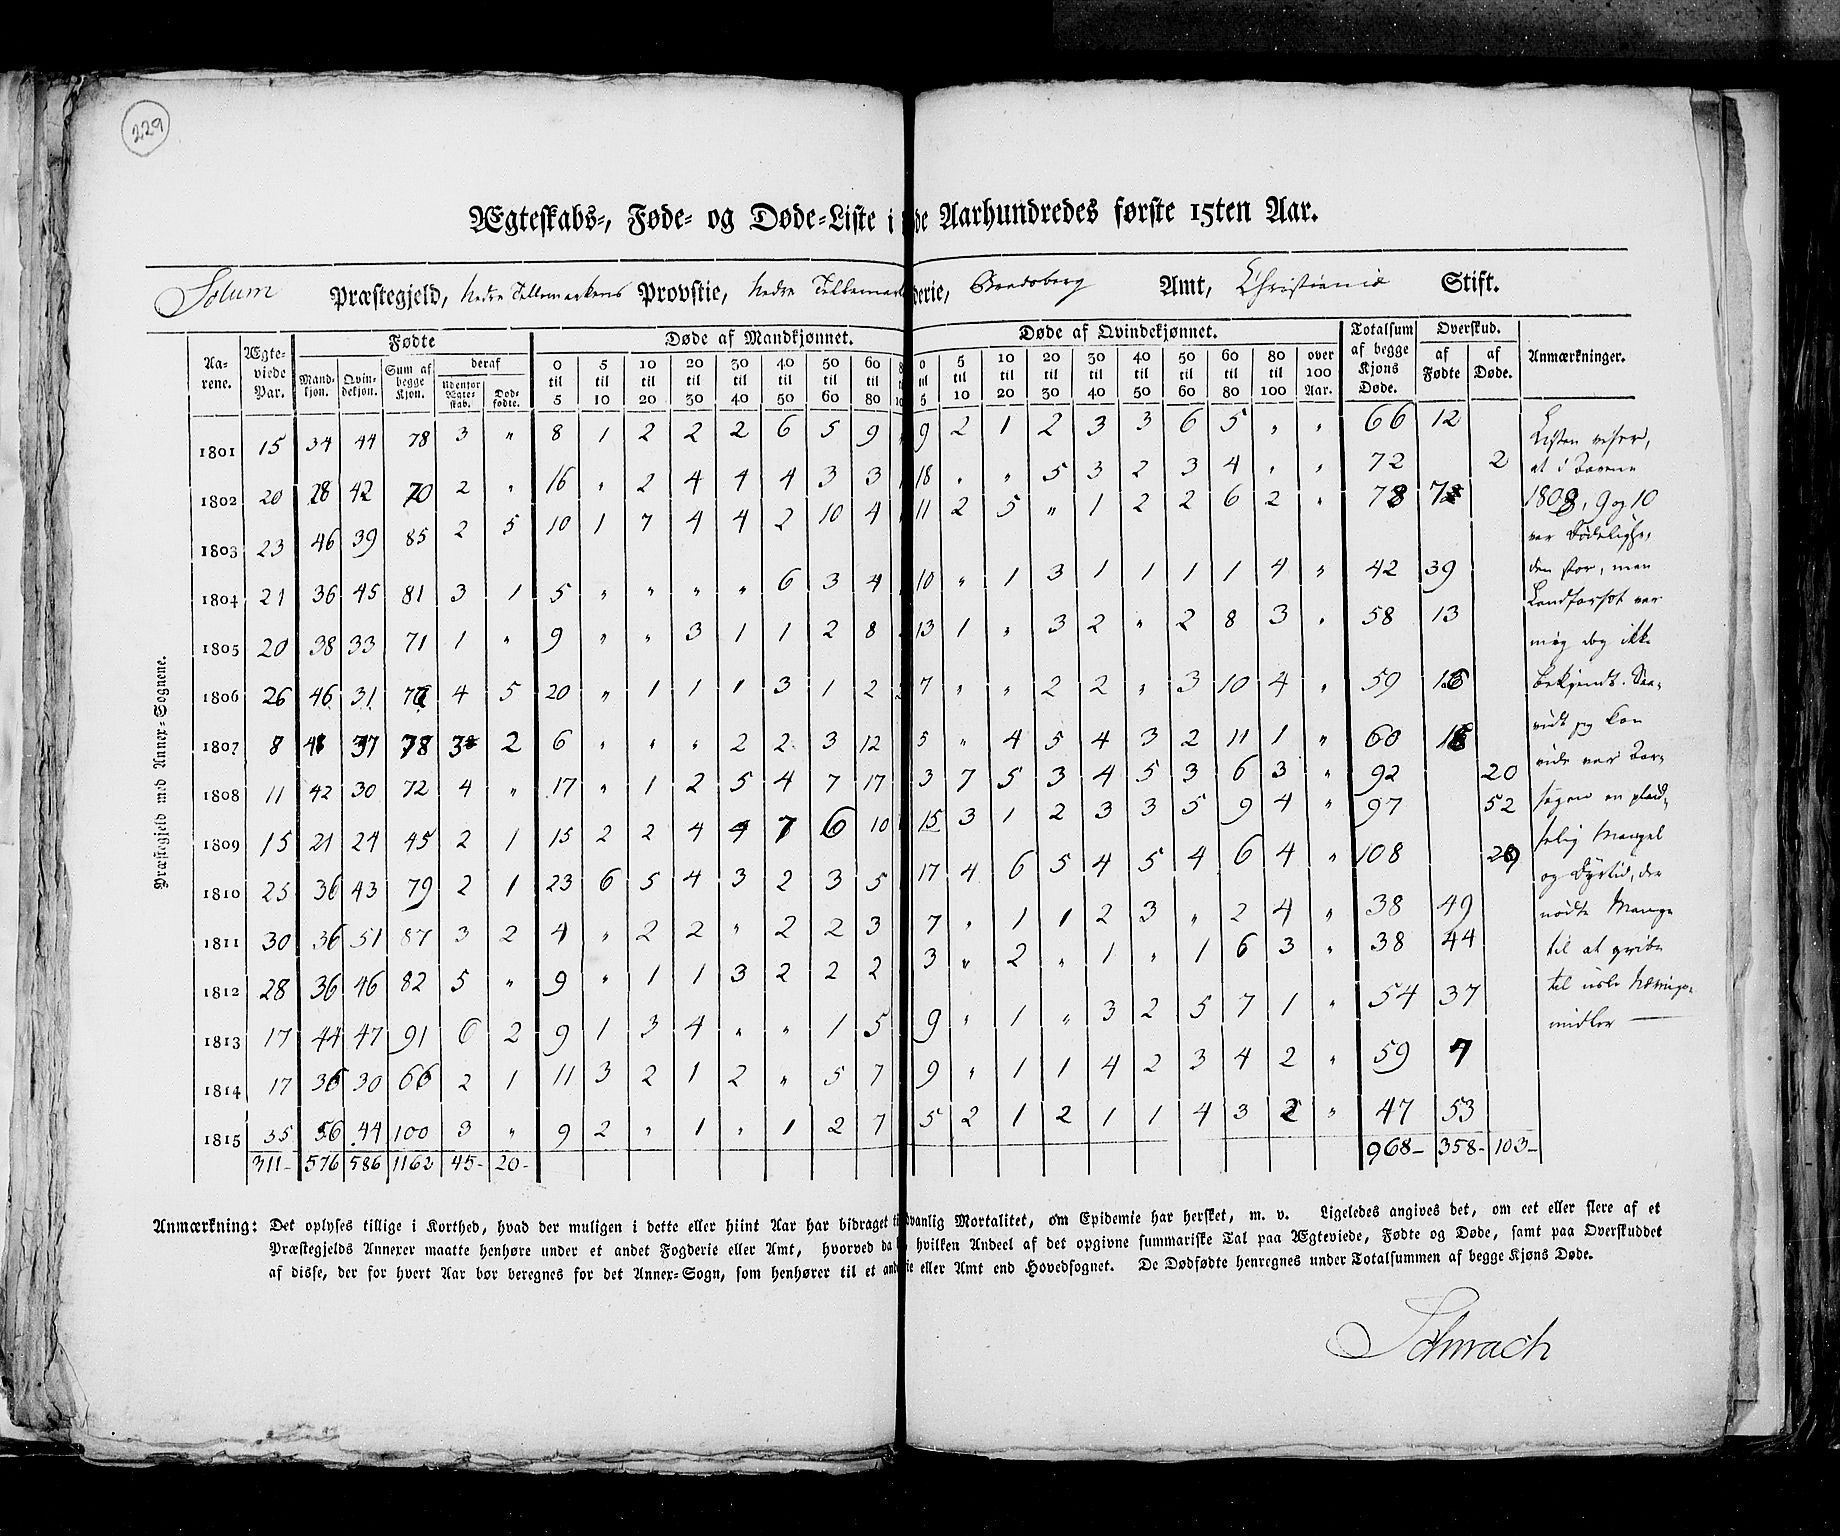 229
Ægteskabs-, Føde- og Døde-Liste i de Aarhundredes første 15ten Aar.
Solum Præstegjeld, Nedre Tellemarkens Provstie, Nedre Tellemar derie, Bradsberg Amt, Christiania Stift.
Præstegjeld med Annex-Sognene.
Aarene. Ægteviede Par. Fødte Døde af Mandkjønnet. Døde af Qvindekjønnet. Totalsum af begge Kjøns Døde. Overskud. Anmærkninger.
Mandkjøn. Qvindekjøn. Sum af begge Kjøn. deraf Udenfor Ægteskab. Dødfødte. af Fødte af Døde.
0 til 5 5 til 10 10 til 20 20 til 30 30 til 40 40 til 50 50 til 60 60 til 80 0 til 5 5 til 10 10 til 20 20 til 30 30 til 40 40 til 50 50 til 60 60 til 80 80 til 100 over 100 Aar.
1801 15 34 44 78 3 " 8 1 2 2 2 6 5 9 9 2 1 2 3 3 6 5 " " 66 12
1802 20 28 42 70 2 " 16 " 2 4 4 4 3 3 18 " " 5 3 2 3 4 " " 72 2
1803 23 46 39 85 2 5 10 1 7 4 4 2 10 4 11 2 5 " 1 2 2 6 2 " 78 7
1804 21 36 45 81 3 1 5 " " " " 6 3 4 10 " 1 3 1 1 1 1 4 " 42 39
1805 20 38 33 71 1 " 9 " " 3 1 1 2 8 13 1 " 3 2 " 2 8 3 " 58 13
1806 26 46 31 77 4 5 20 " 1 1 1 3 1 2 7 " " 2 2 " 3 10 4 " 59 18
1807 8 41 37 78 3 2 6 " " " 2 2 3 12 5 " 4 5 4 3 2 11 1 " 60 18
1808 11 42 30 72 4 " 17 " 1 2 5 4 7 17 3 7 5 3 4 5 3 6 3 " 92 20
1809 15 21 24 45 2 1 15 2 2 4 4 7 6 10 15 3 1 2 3 3 5 9 4 " 97 52
1810 25 36 43 79 2 1 23 6 5 4 3 2 3 5 17 4 6 5 4 5 4 6 4 " 108 29
1811 30 36 51 87 3 2 4 " 2 2 " 2 2 3 7 " 1 1 2 3 " 2 4 " 38 49
1812 28 36 46 82 5 " 9 " 1 1 3 2 2 2 3 " 2 " 1 " 1 6 3 " 38 44
1813 17 44 47 91 6 2 9 1 3 4 " " 1 5 9 " 1 " 3 2 5 7 1 " 54 37
1814 17 36 30 66 2 1 11 3 2 1 2 " 5 7 9 " 1 1 4 2 3 4 2 " 59 7
1815 35 56 44 100 3 " 9 2 " 1 " 1 2 7 5 2 1 2 1 1 4 3 2 " 47 53
311- 576 586 1162 45- 20- 968- 358- 103-
Listen viser,
at i Aarene
1808, 9 og 10
var Dødelighe-
den stor, men
Landfarsot var
mig dog ikke
bekjendt. Saa-
vidt jeg kan
vide var Aar-
sagen en
Mangel
og Dyrtid, der
nødte Mange
til at gribe
til usle Nærings-
midler —
Anmærkning: Det oplyses tillige i Korthed, hvad der muligen i dette eller hiint Aar har bidraget til vanlig Mortalitet, om Epidemie har hersket, m. v. Ligeledes angives det, om eet eller flere af et
Præstegjelds Annexer maatte henhøre under et andet Fogderie eller Amt, hvorved da hvilken Andeel af det opgivne summariske Tal paa Ægteviede, Fødte og Døde, samt paa Overskuddet
af disse, der for hvert Aar bør beregnes for det Annex-Sogn, som henhører til et and ie eller Amt end Hovedsognet. De Dødfødte henregnes under Totalsummen af begge Kjøns Døde.
Schwach